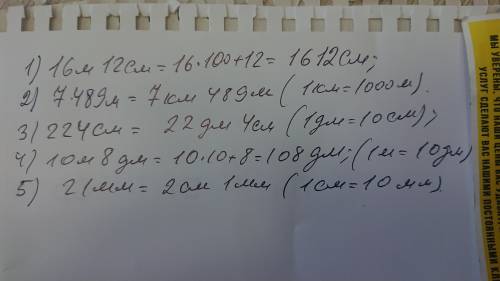 1) 16м 12см = 16·100+12 = 1612см;
2) 7489м = 7км 489м (1км=1000м).
3) 224см = 22дм 4см (1дм=10см);
4) 10м 8дм = 10·10+8=108дм; (1м=10дм)
5) 21мм = 2см 1мм (1см=10мм).
МЫ УВЕРЕНЫ, ЧТО
УСЛУГ СДЕЛАЮТ ВАС НАШИМИ ПОСТОЯННЫМИ